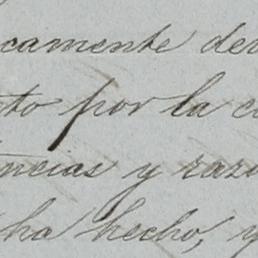 camente de
nto por la c
ncias y raz
ha hecho, y